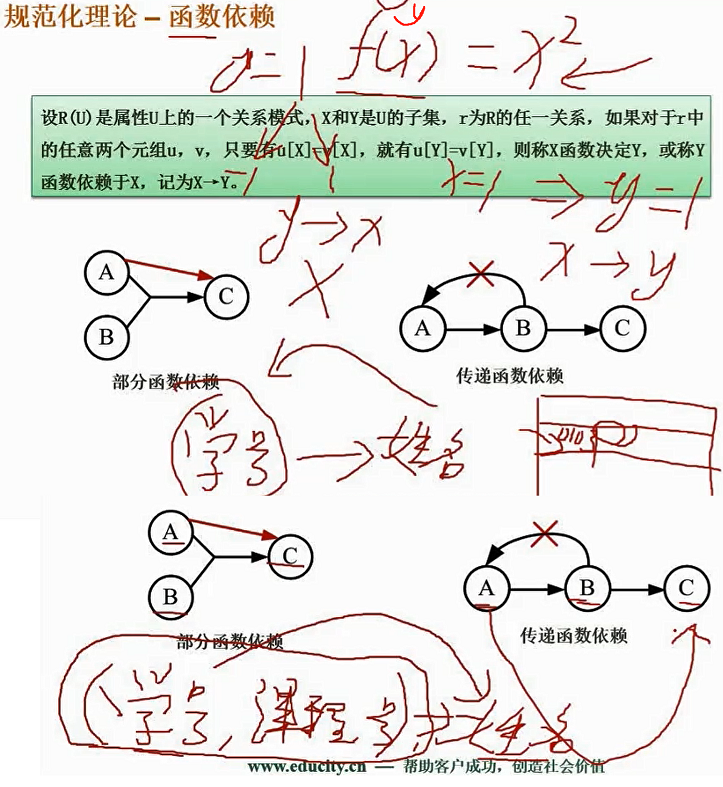 规范化理论 – 函数依赖
y
y=1 f(x) = x²
设R(U)是属性U上的一个关系模式，X和Y是U的子集，r为R的任一关系，如果对于r中
的任意两个元组u，v，只要有u[X]=v[X]，就有u[Y]=v[Y]，则称X函数决定Y，或称Y
函数依赖于X，记为X→Y。
-1 1 x=1 ⇒ y=1
y→x x→y
X
A
B
C
A B C
部分函数依赖 传递函数依赖
学号 → 姓名
A
B
C
A B C
部分函数依赖 传递函数依赖
(学号, 课程号) → 姓名
www.educity.cn — 帮助客户成功，创造社会价值